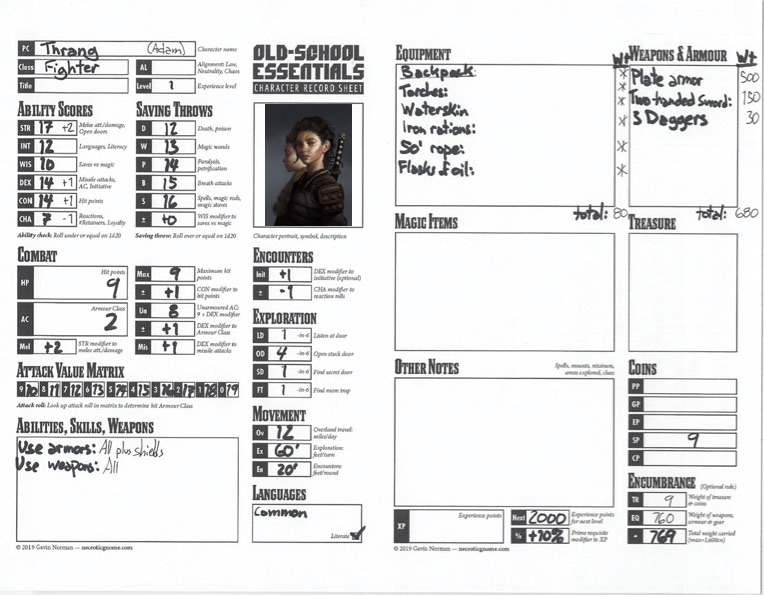 PC Thrang (Adam) Character name
Class Fighter AL Alignment: Law, Neutrality, Chaos
Title Level 1 Experience level
OLD-SCHOOL
ESSENTIALS
CHARACTER RECORD SHEET
ABILITY SCORES
STR 17 +2 Melee att./damage, Open doors
INT 12 Languages, Literacy
WIS 10 Saves vs magic
DEX 14 +1 Missile attacks, AC, Initiative
CON 14 +1 Hit points
CHA 7 -1 Reactions, #Retainers, Loyalty
Ability check: Roll under or equal on 1d20
SAVING THROWS
D 12 Death, poison
W 13 Magic wands
P 14 Paralysis, petrification
B 15 Breath attacks
S 16 Spells, magic rods, magic staves
± +0 WIS modifier to saves vs magic
Saving throw: Roll over or equal on 1d20
Character portrait, symbol, description
COMBAT
HP 9 Hit points
AC 2 Armour Class
Mel +2 STR modifier to melee att./damage
Max 9 Maximum hit points
± +1 CON modifier to hit points
Un 8 Unarmoured AC: 9 + DEX modifier
± +1 DEX modifier to Armour Class
Mis +1 DEX modifier to missile attacks
ATTACK VALUE MATRIX
9 10 8 11 7 12 6 13 5 14 4 15 3 16 2 17 1 18 0 19
Attack roll: Look up attack roll in matrix to determine hit Armour Class
ABILITIES, SKILLS, WEAPONS
Use armors: All plus shields
Use weapons: All
ENCOUNTERS
Init +1 DEX modifier to initiative (optional)
± -1 CHA modifier to reaction rolls
EXPLORATION
LD 1 -in-6 Listen at door
OD 4 -in-6 Open stuck door
SD 1 -in-6 Find secret door
FT 1 -in-6 Find room trap
MOVEMENT
Ov 12 Overland travel: miles/day
Ex 60' Exploration: feet/turn
En 20' Encounters: feet/round
LANGUAGES
Common
Literate
© 2019 Gavin Norman — necroticgnome.com
EQUIPMENT Wt
Backpack
Torches:
Waterskin
Iron rations:
50' rope:
Flasks of oil:
total: 80
WEAPONS & ARMOUR Wt
Plate armor 500
Two-handed Sword: 150
3 Daggers 30
total: 680
MAGIC ITEMS
TREASURE
OTHER NOTES Spells, mounts, retainers, areas explored, clues
COINS
PP
GP
EP
SP 9
CP
ENCUMBRANCE (Optional rule)
TR 9 Weight of treasure & coins
EQ 760 Weight of weapons, armour & gear
= 769 Total weight carried (max=1,600cn)
XP Experience points
Next 2000 Experience points for next level
% +10% Prime requisite modifier to XP
© 2019 Gavin Norman — necroticgnome.com